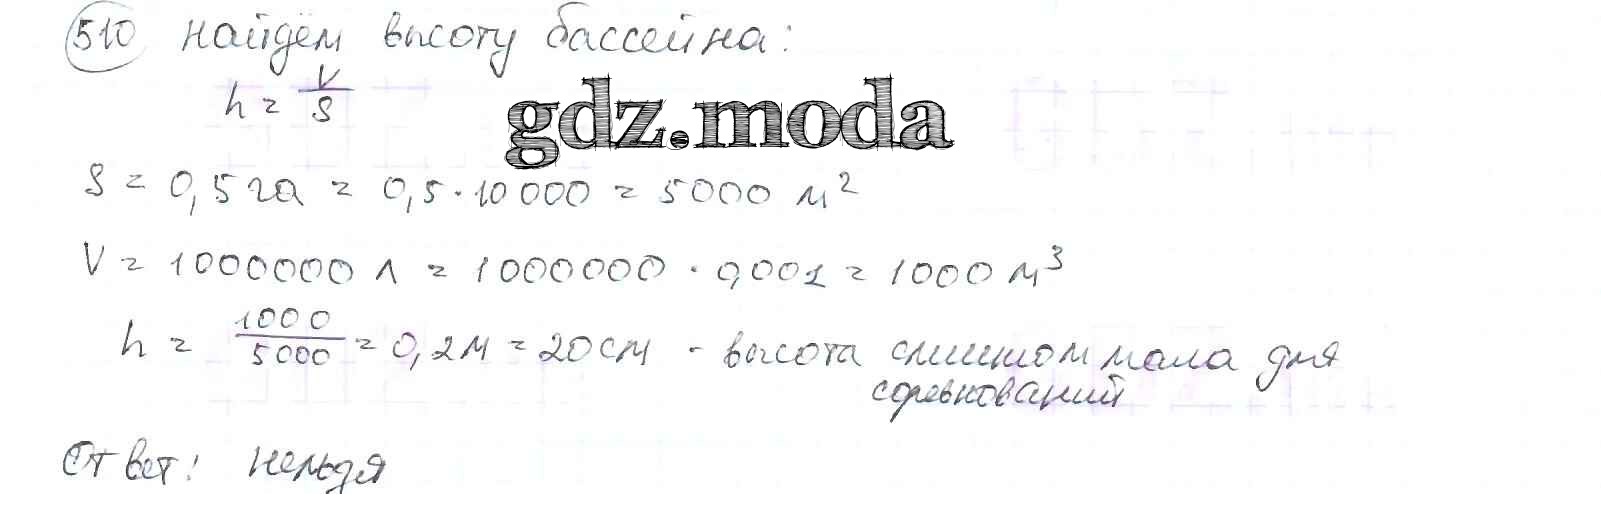 510 найдём высоту бассейна:
h = V/S
gdz.moda
S = 0,5 га = 0,5 · 10 000 = 5000 м²
V = 1000000 л = 1000000 · 0,001 = 1000 м³
h = 1000/5000 = 0,2 м = 20 см - высота слишком мала для
соревнований
Ответ: нельзя